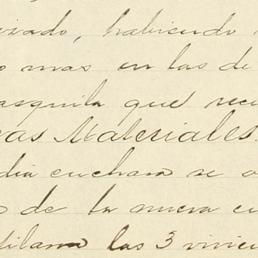 izado, habiendo
o mas en las de
asquila que reci
as Materiales.
dia cuchara se o
o de la nueva cu
filaron las 3 vivie